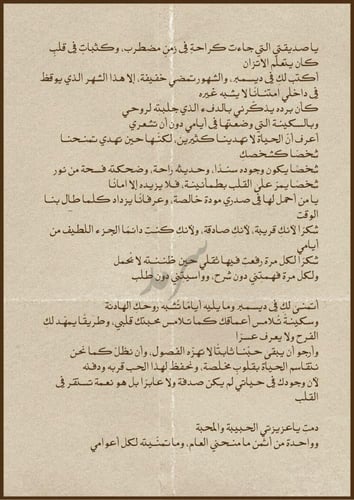 يا صديقتي التي جاءت كراحةٍ في زمنٍ مضطرب، وكثباتٍ في قلبٍ
كان يتعلّم الاتزان
أكتب لكِ في ديسمبر، والشهور تمضي خفيفة، إلا هذا الشهر الذي يوقظ
في داخلي امتنانًا لا يشبه غيره
كأن برده يذكّرني بالدفء الذي جلبتهِ لروحي
وبالسكينة التي وضعتها في أيامي دون أن تشعري
أعرف أنّ الحياة لا تهدينا كثيرين، لكنّها حين تهدي تمنحنا
شخصًا كشخصك
شخصًا يكون وجوده سندًا، وحديثه راحة، وضحكته فسحة من نور
شخصًا يمرّ على القلب بطمأنينة، فلا يزيده إلا امانًا
يا من أحمل لها في صدري مودة خالصة، وعرفانًا يزداد كلما طال بنا
الوقت
شكرًا لأنك قريبة، لأنك صادقة، ولأنك كنت دائمًا الجزء اللطيف من
أيامي
شكرًا لكل مرة رفعت فيها ثقلي حين ظننته لا يُحمل
ولكل مرة فهمتني دون شرح، وواسيتني دون طلب
أتمنى لك في ديسمبر وما يليه أيامًا تُشبه روحك الهادئة
وسكينةً تلامس أعماقك كما تلامس محبتك قلبي، وطريقًا يمهّد لك
الفرح ولا يعرف عسرًا
وأرجو أن يبقى حبّنا ثابتًا لا تهزه الفصول، وأن نظلّ كما نحن
نتقاسم الحياة بقلوب مخلصة، ونحفظ لهذا الحب قربه ودفئه
لأن وجودك في حياتي لم يكن صدفة ولا عابرا بل هو نعمة تستقر في
القلب
دمت يا عزيزتي الحبيبة والمحبة
وواحدة من أثمن ما منحتني العام، وما تمنّيته لكل أعوامي